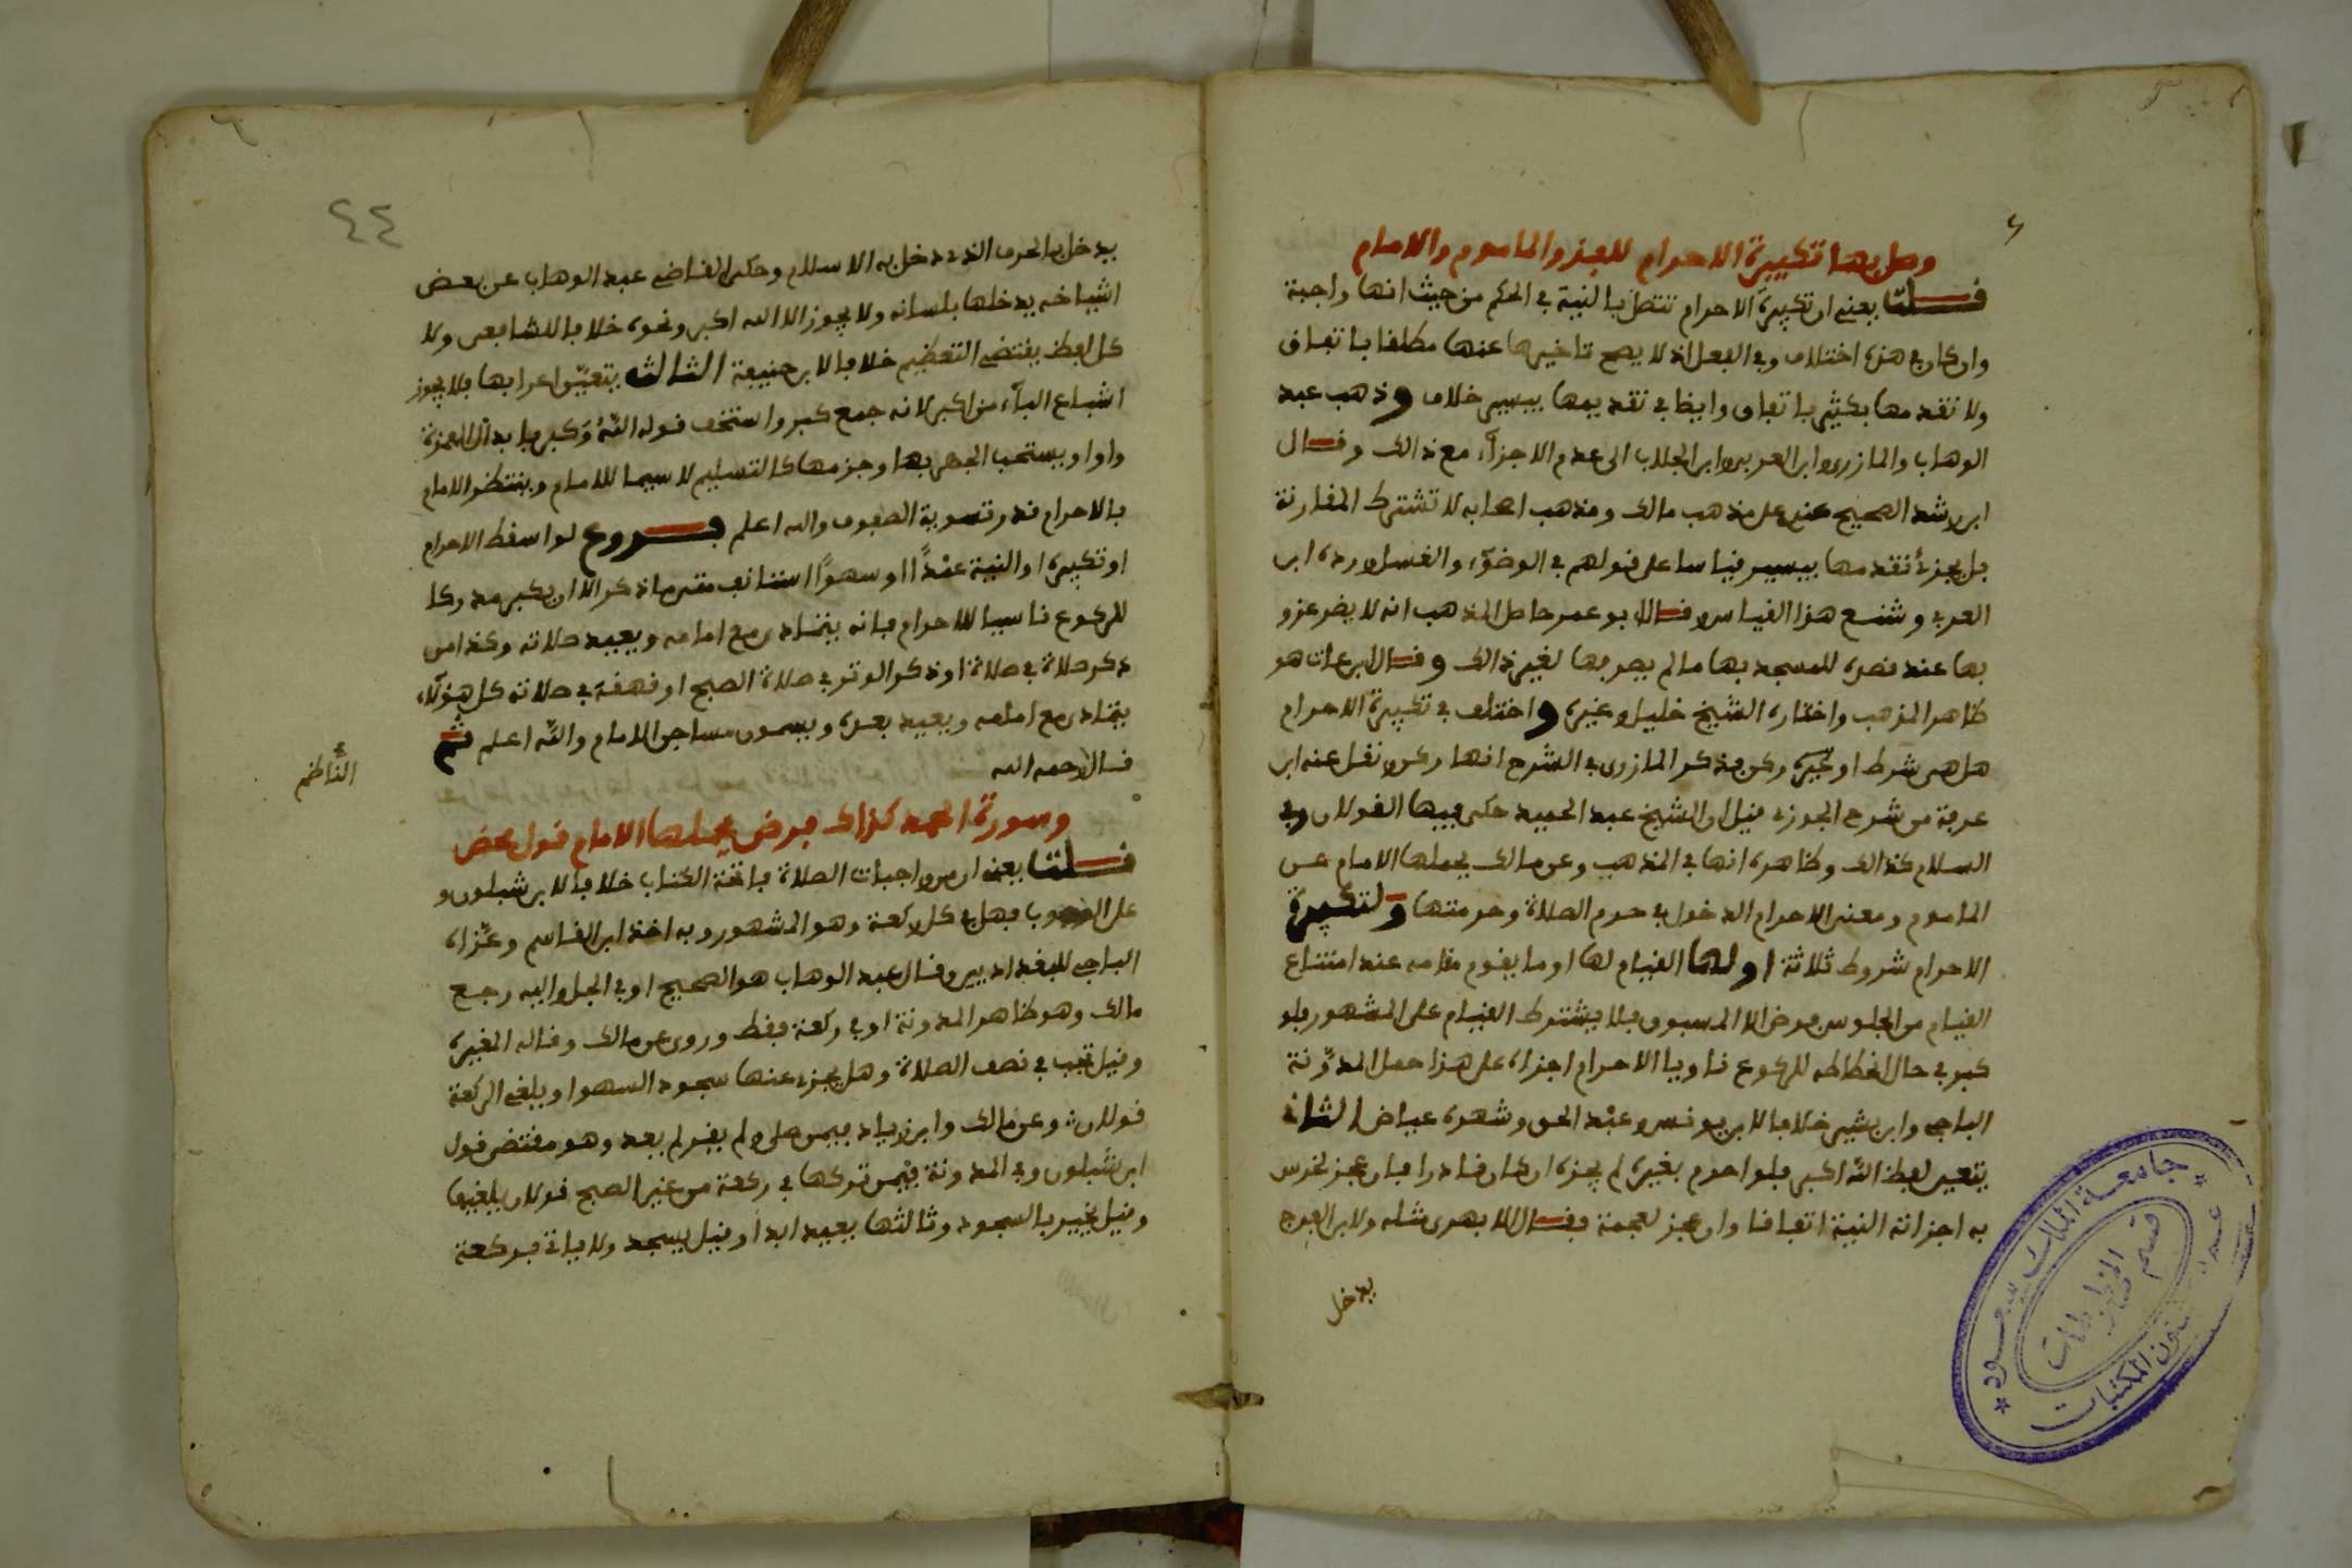 وصل بها تكبيرة الاحرام للفذ والماموم والامام
قلت يعني ان تكبيرة الاحرام تتصل بالنية في الحكم من حيث انها واجبة
وان كان في هذه اختلاف وفي الفعل اذ لا يصح تاخيرها عنها مطلقا باتفاق
ولا تقدمها بكثير باتفاق وايضا في تقديمها بيسير خلاف وذهب عبد
الوهاب والمازري وابن العربي وابن الجلاب الى عدم الاجزاء مع ذالك وقال
ابن رشد الصحيح عندي على مذهب مالك ومذهب اصحابه لا تشترط المقارنة
بل يجزئ تقدمها بيسير قياسا على قولهم في الوضوء والغسل ورده ابن
العربي وشنع هذا القياس وقال ابو عمر حاصل المذهب انه لا يضر عزو
بها عند قصده للمسجد بها مالم يصرفها لغير ذالك وقال ابن عات هو
ظاهر المذهب واختاره الشيخ خليل وغيره واختلف في تكبيرة الاحرام
هل هي شرط او غيره ركن فذكر المازري في الشرح انها ركن ونقل عنه ابن
عرفة من شرح الجوزقي قيل ان الشيخ عبد الحميد حكى فيها القولان وفي
السلام كذالك وظاهره انها في المذهب وعن مالك يحملها الامام عن
الماموم ومعنى الاحرام الدخول في حرم الصلاة وحرمتها ولتكبيرة
الاحرام شروط ثلاثة اولها القيام لها او ما يقوم مقامه عند امتناع
القيام من الجلوس فرض الا المسبوق فلا يشترط القيام على المشهور فلو
كبر في حال انحطاطه للركوع ناويا الاحرام اجزاه على هذا حمل المدونة
الباجي وابن بشير خلافا لابن يونس وعبد الحق وشهره عياض الثاني
يتعين لفظ الله اكبر فلو احرم بغيره لم يجزه ان كان قادرا فان عجز لخرس
به اجزاته النية اتفاقا وان عجز لعجمة فقال الابهري مثله ولابي الفرج
يدخل
٤٤
يدخل بالحرف الذي دخل به الاسلام وحكى القاضي عبد الوهاب عن بعض
اشياخه يدخلها بلسانه ولا يجوز الا الله اكبر ونحوه خلافا للشافعي ولا
كل لفظ يقتضي التعظيم خلافا لابي حنيفة الثالث يتعين اعرابها فلا يجوز
اشباع الباء من اكبر لانه جمع كبر واستخف قوله الله وكبر بابدال الهمزة
واوا ويستحب الجهر بها وجزمها كالتسليم لاسيما للامام وينتظر الامام
بالاحرام قدر تسوية الصفوف والله اعلم فروع لو اسقط الاحرام
او تكبيره او النية عمدا او سهوا استانف متى ما ذكر الا ان يكبر مدركا
للركوع ناسيا للاحرام فانه يتمادى مع امامه ويعيد صلاته وكذا من
ذكر صلاة في صلاة او ذكر الوتر في صلاة الصبح او قهقه في صلاته كل هؤلاء
يتمادى مع امامه ويعيد بعده ويسمون مساجن الامام والله اعلم ثم
قال رحمه الله
الناظم
وسورة الحمد كذاك فرض يحملها الامام قول محض
قلت يعني ان من واجبات الصلاة فاتحة الكتاب خلافا لابن شبلون و
على الوجوب فهل في كل ركعة وهو المشهور وبه اخذ ابن القاسم وعزاه
الباجي للبغداديين وقال عبد الوهاب هو الصحيح او في الجل واليه رجع
مالك وهو ظاهر المدونة او في ركعة فقط وروي عن مالك وقاله المغيرة
وقيل تجب في نصف الصلاة وهل يجزئ عنها سجود السهو او يلغي الركعة
قولان وعن مالك وابن زياد فيمن صلى ولم يقرا لم يعد وهو مقتضى قول
ابن شبلون وفي المدونة فيمن تركها في ركعة من غير الصبح قولان يلغيها
وقيل يجبر بالسجود وثالثها يعيد ابدا وقيل يسجد ولا ياتي بركعة
جامعة الملك سعود
قسم المخطوطات
عمادة شئون المكتبات